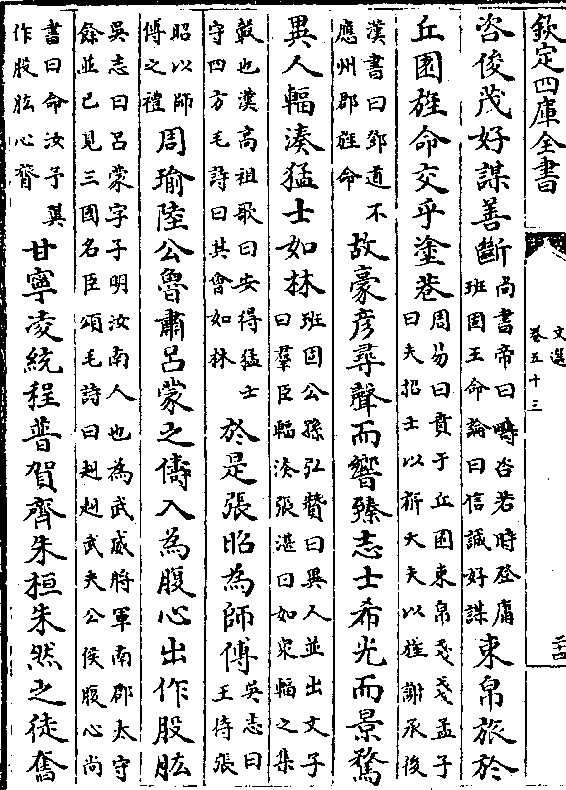 欽定四庫全書
文選
卷五十三
二十四
咨俊茂好謀善斷
尚書帝曰疇咨若時登庸
班固王命論曰信誠好謀
束帛旅於
丘園旌命交乎塗巷
周易曰賁于丘園束帛戔戔孟子
曰夫招士以旂大夫以旌謝承後
漢書曰鄧道不
應州郡旌命
故豪彦尋聲而響臻志士希光而景騖
異人輻湊猛士如林
班固公孫弘贊曰異人並出文子
曰羣臣輻湊張湛曰如衆輻之集
轂也漢高祖歌曰安得猛士
守四方毛詩曰其會如林
於是張昭為師傅
吳志曰
王待張
昭以師
傅之禮
周瑜陸公魯肅吕蒙之儔入為腹心出作股肱
吳志曰吕蒙字子明汝南人也為武威將軍南郡太守
餘並已見三國名臣頌毛詩曰赳赳武夫公侯腹心尚
書曰命汝予翼
作股肱心膂
甘寧凌統程普賀齊朱桓朱然之徒奮